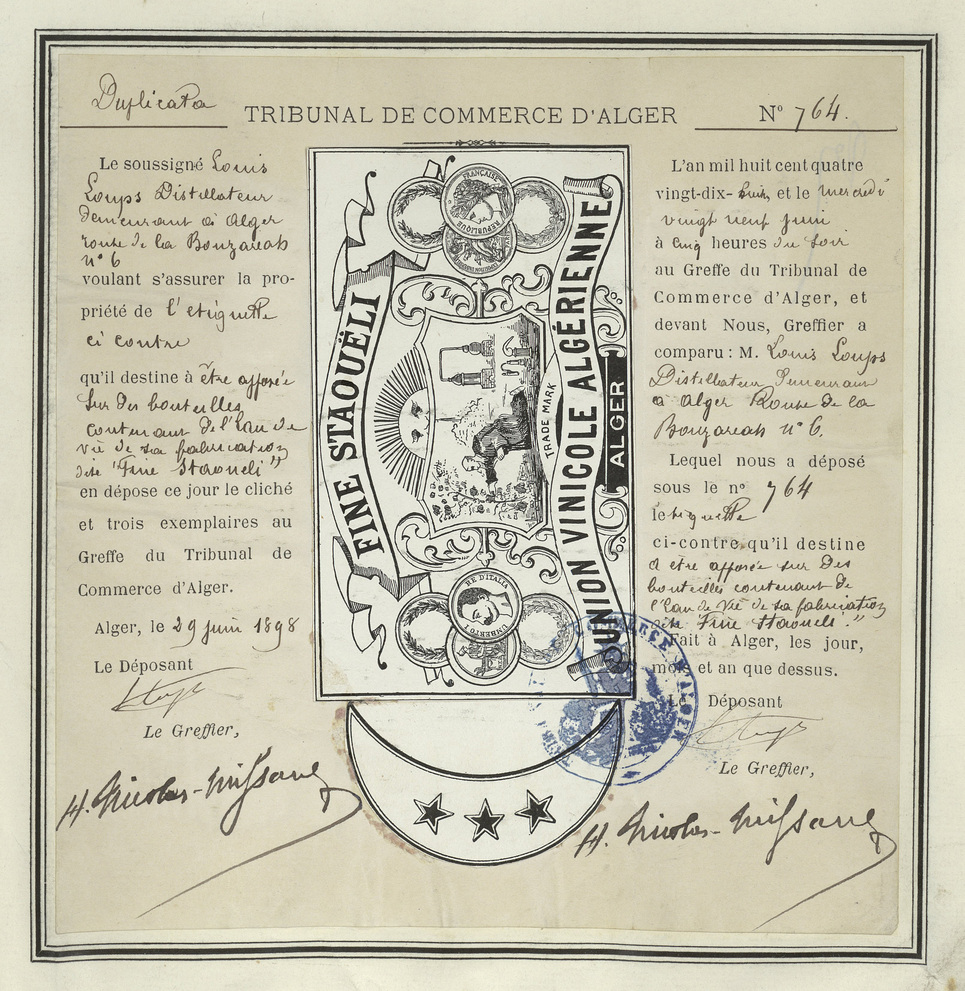 Duplicata
TRIBUNAL DE COMMERCE D'ALGER
Nº 764.
Le soussigné Louis
Loups Distillateur
demeurant à Alger
route de la Bouzareah
nº 6
voulant s'assurer la pro-
priété de l'etiquette
ci contre
qu'il destine à être apposée
sur des bouteilles
contenant de l'Eau de
vie de sa fabrication
dite "Fine Staoueli"
en dépose ce jour le cliché
et trois exemplaires au
Greffe du Tribunal de
Commerce d'Alger.
Alger, le 29 juin 1898
Le Déposant
Le Greffier,
FINE STAOUËLI
RÉPUBLIQUE FRANÇAISE
TRADE MARK
UNION VINICOLE ALGÉRIENNE
ALGER
UMBERTO I RE D'ITALIA
L'an mil huit cent quatre
vingt-dix-huit, et le mercredi
vingt neuf juin
à cinq heures du soir
au Greffe du Tribunal de
Commerce d'Alger, et
devant Nous, Greffier a
comparu : M. Louis Loups
Distillateur Demeurant
à Alger Route de la
Bouzareah nº 6.
Lequel nous a déposé
sous le nº 764
letiquette
ci-contre qu'il destine
à être apposée sur des
bouteilles contenant de
l'Eau de Vie de sa fabrication
dite "Fine Staoueli."
Fait à Alger, les jour,
mois et an que dessus.
Le Déposant
Le Greffier,